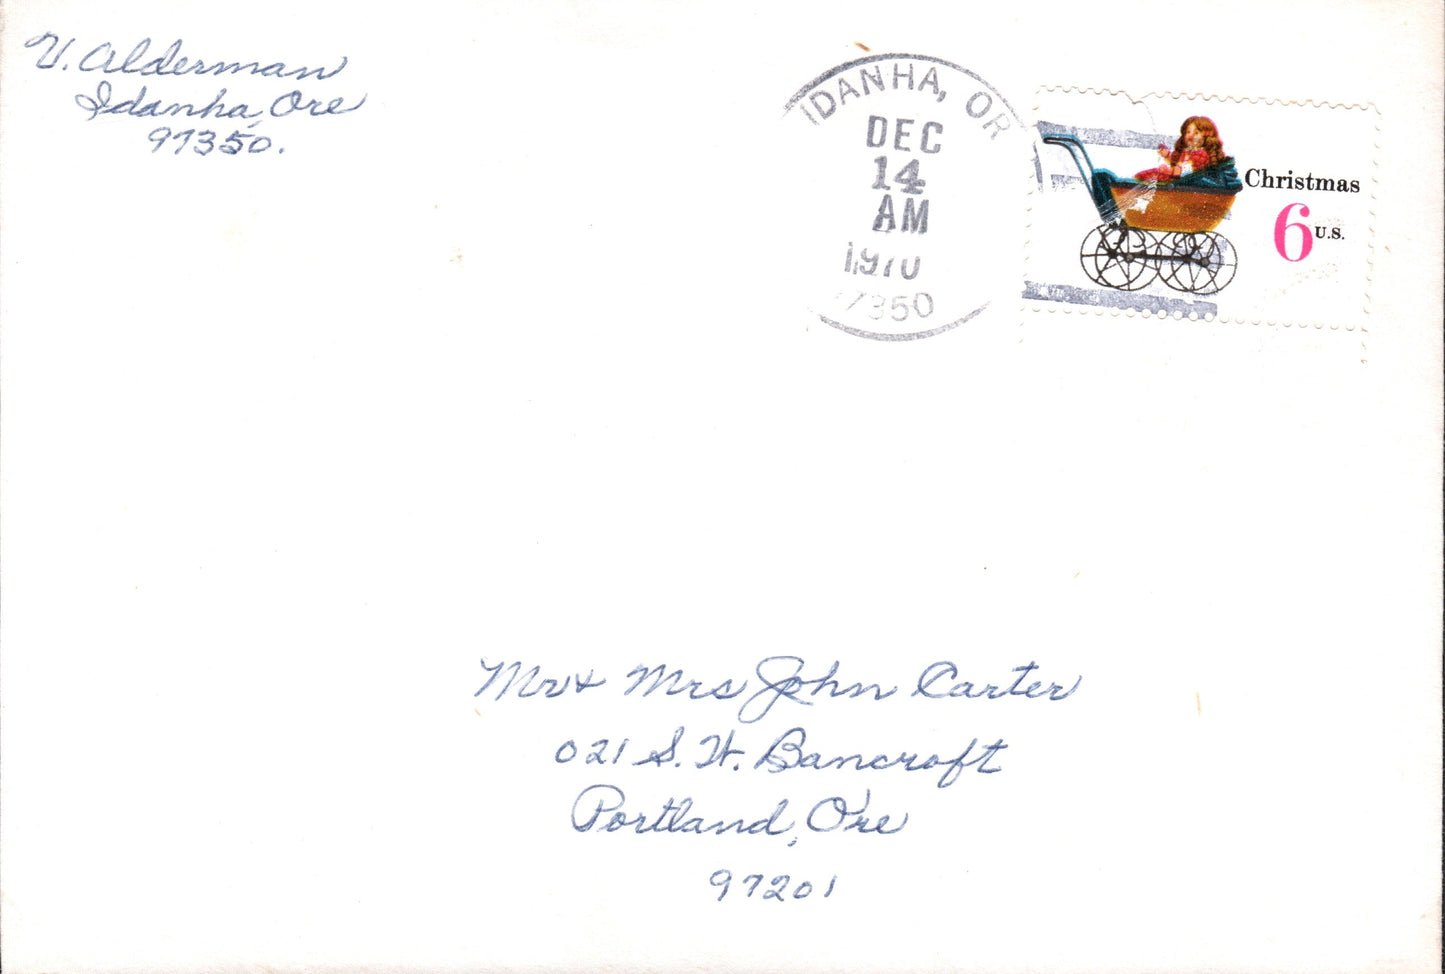 V. Alderman
Idanha, Ore
97350.
IDANHA, OR
DEC
14
AM
1970
7350
Christmas
6 U.S.
Mr + Mrs John Carter
021 S. W. Bancroft
Portland, Ore
97201